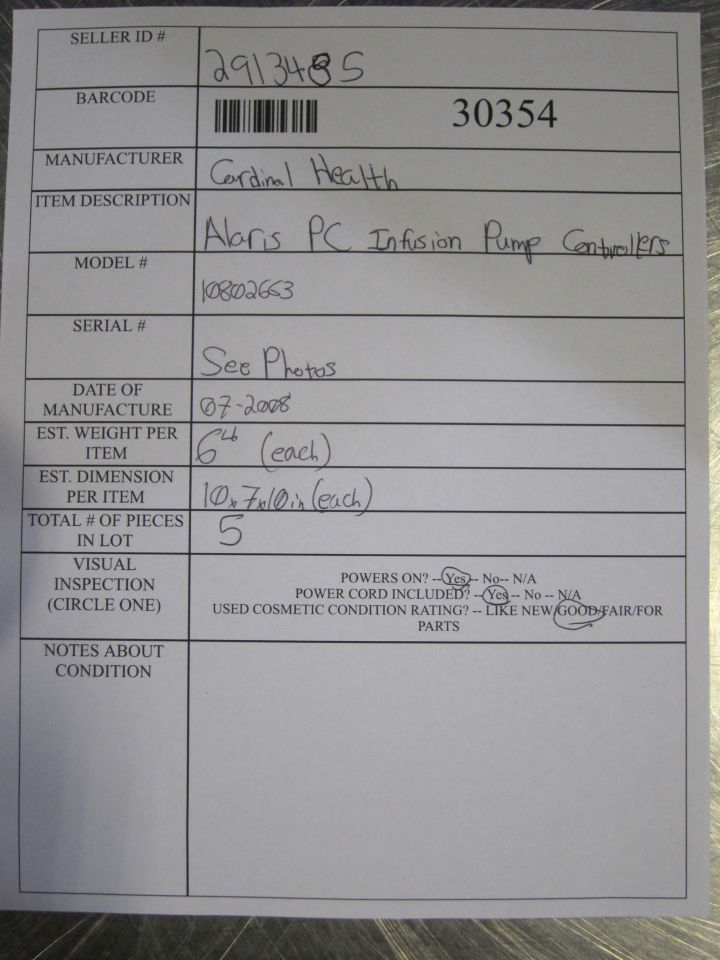 SELLER ID #
2913485
BARCODE
30354
MANUFACTURER
Cardinal Health
ITEM DESCRIPTION
Alaris PC Infusion Pump Controllers
MODEL #
10802663
SERIAL #
See Photos
DATE OF
MANUFACTURE
07-2008
EST. WEIGHT PER
ITEM
6 Lb (each)
EST. DIMENSION
PER ITEM
10x7x10in (each)
TOTAL # OF PIECES
IN LOT
5
VISUAL
INSPECTION
(CIRCLE ONE)
POWERS ON? -- Yes -- No-- N/A
POWER CORD INCLUDED? -- Yes -- No -- N/A
USED COSMETIC CONDITION RATING? -- LIKE NEW/GOOD/FAIR/FOR
PARTS
NOTES ABOUT
CONDITION